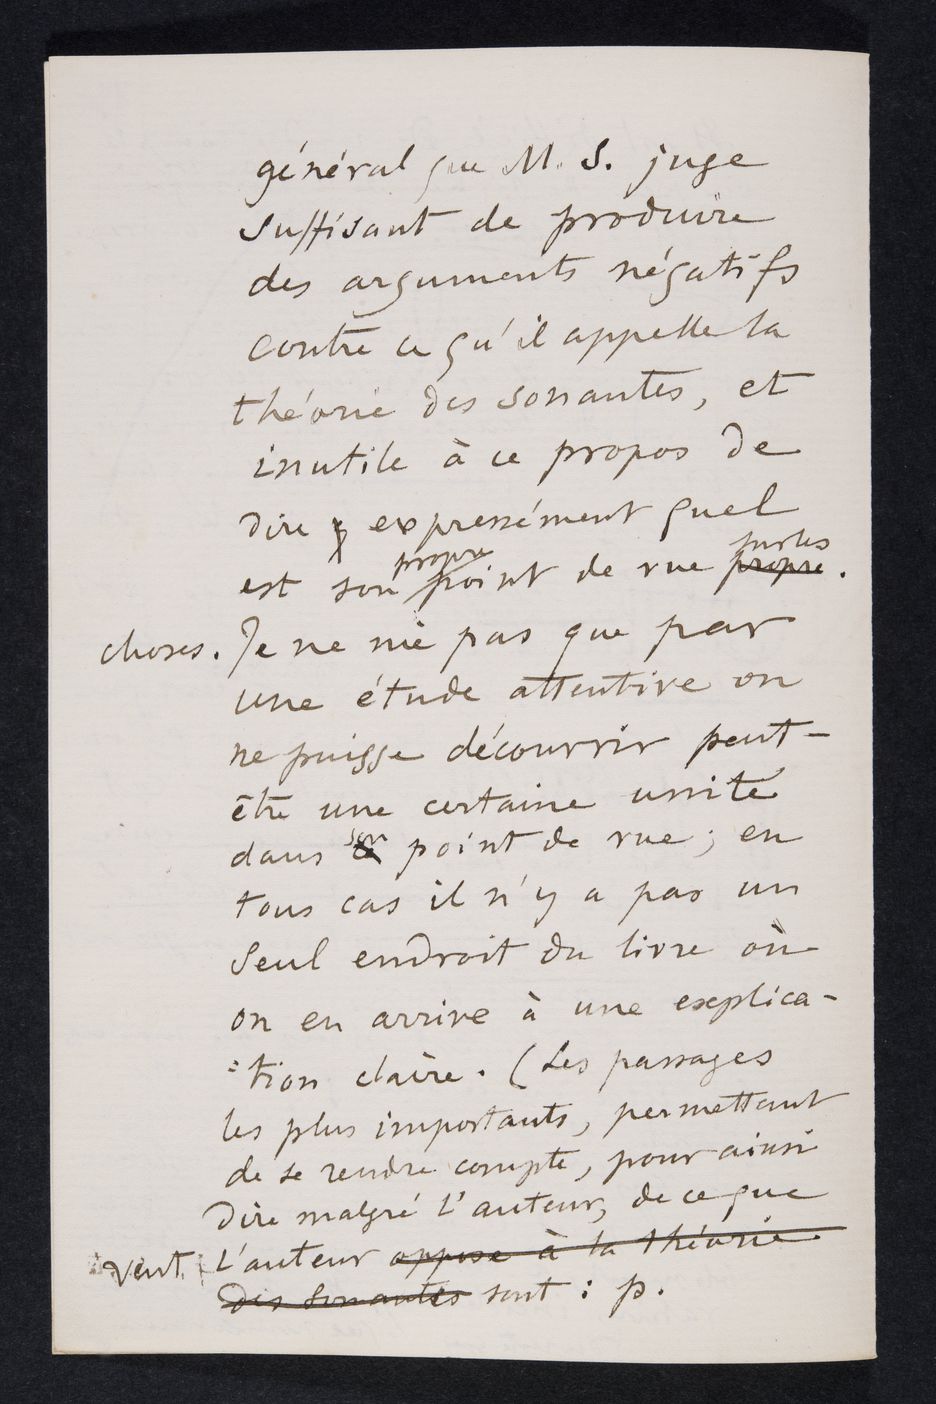 général que M. S. juge
suffisant de produire
des arguments négatifs
contre ce qu'il appelle la
théorie des sonantes, et
inutile à ce propos de
dire expressément quel
propre sur les
est son point de vue propre.
choses. Je ne nie pas que par
une étude attentive on
ne puisse découvrir peut-
être une certaine unité
son
dans le point de vue ; en
tous cas il n'y a pas un
seul endroit du livre où
on en arrive à une explica-
:tion claire. (Les passages
les plus importants, permettant
de se rendre compte, pour ainsi
dire malgré l'auteur, de ce que
veut l'auteur oppose à la théorie
des sonantes sont : p.